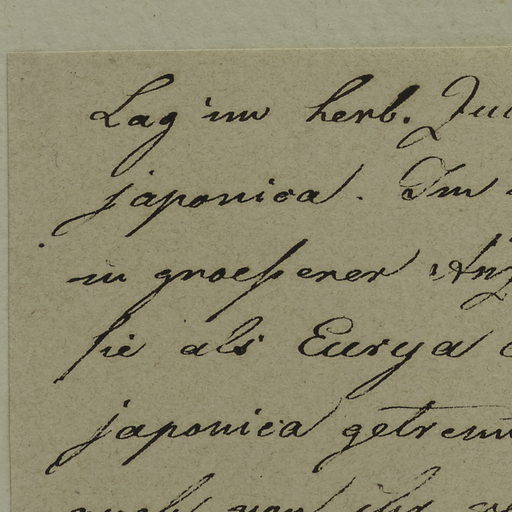 Lag im herb. Zuc
japonica. Im
in groeßerer Anz
sie als Eurya
japonica getrenn
auch von ihr